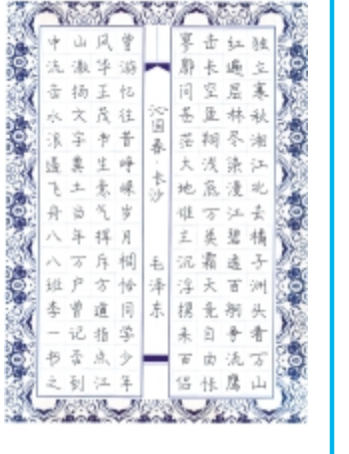 独立寒秋湘江北去橘子洲头看万山
红遍层林尽染漫江碧透百舸争流鹰
击长空鱼翔浅底万类霜天竞自由怅
寥廓问苍茫大地谁主沉浮携来百侣
沁园春·长沙 毛泽东
曾游忆往昔峥嵘岁月稠恰同学少年
风华正茂书生意气挥斥方遒指点江
山激扬文字粪土当年万户曾记否到
中流击水浪遏飞舟八八班李一书之